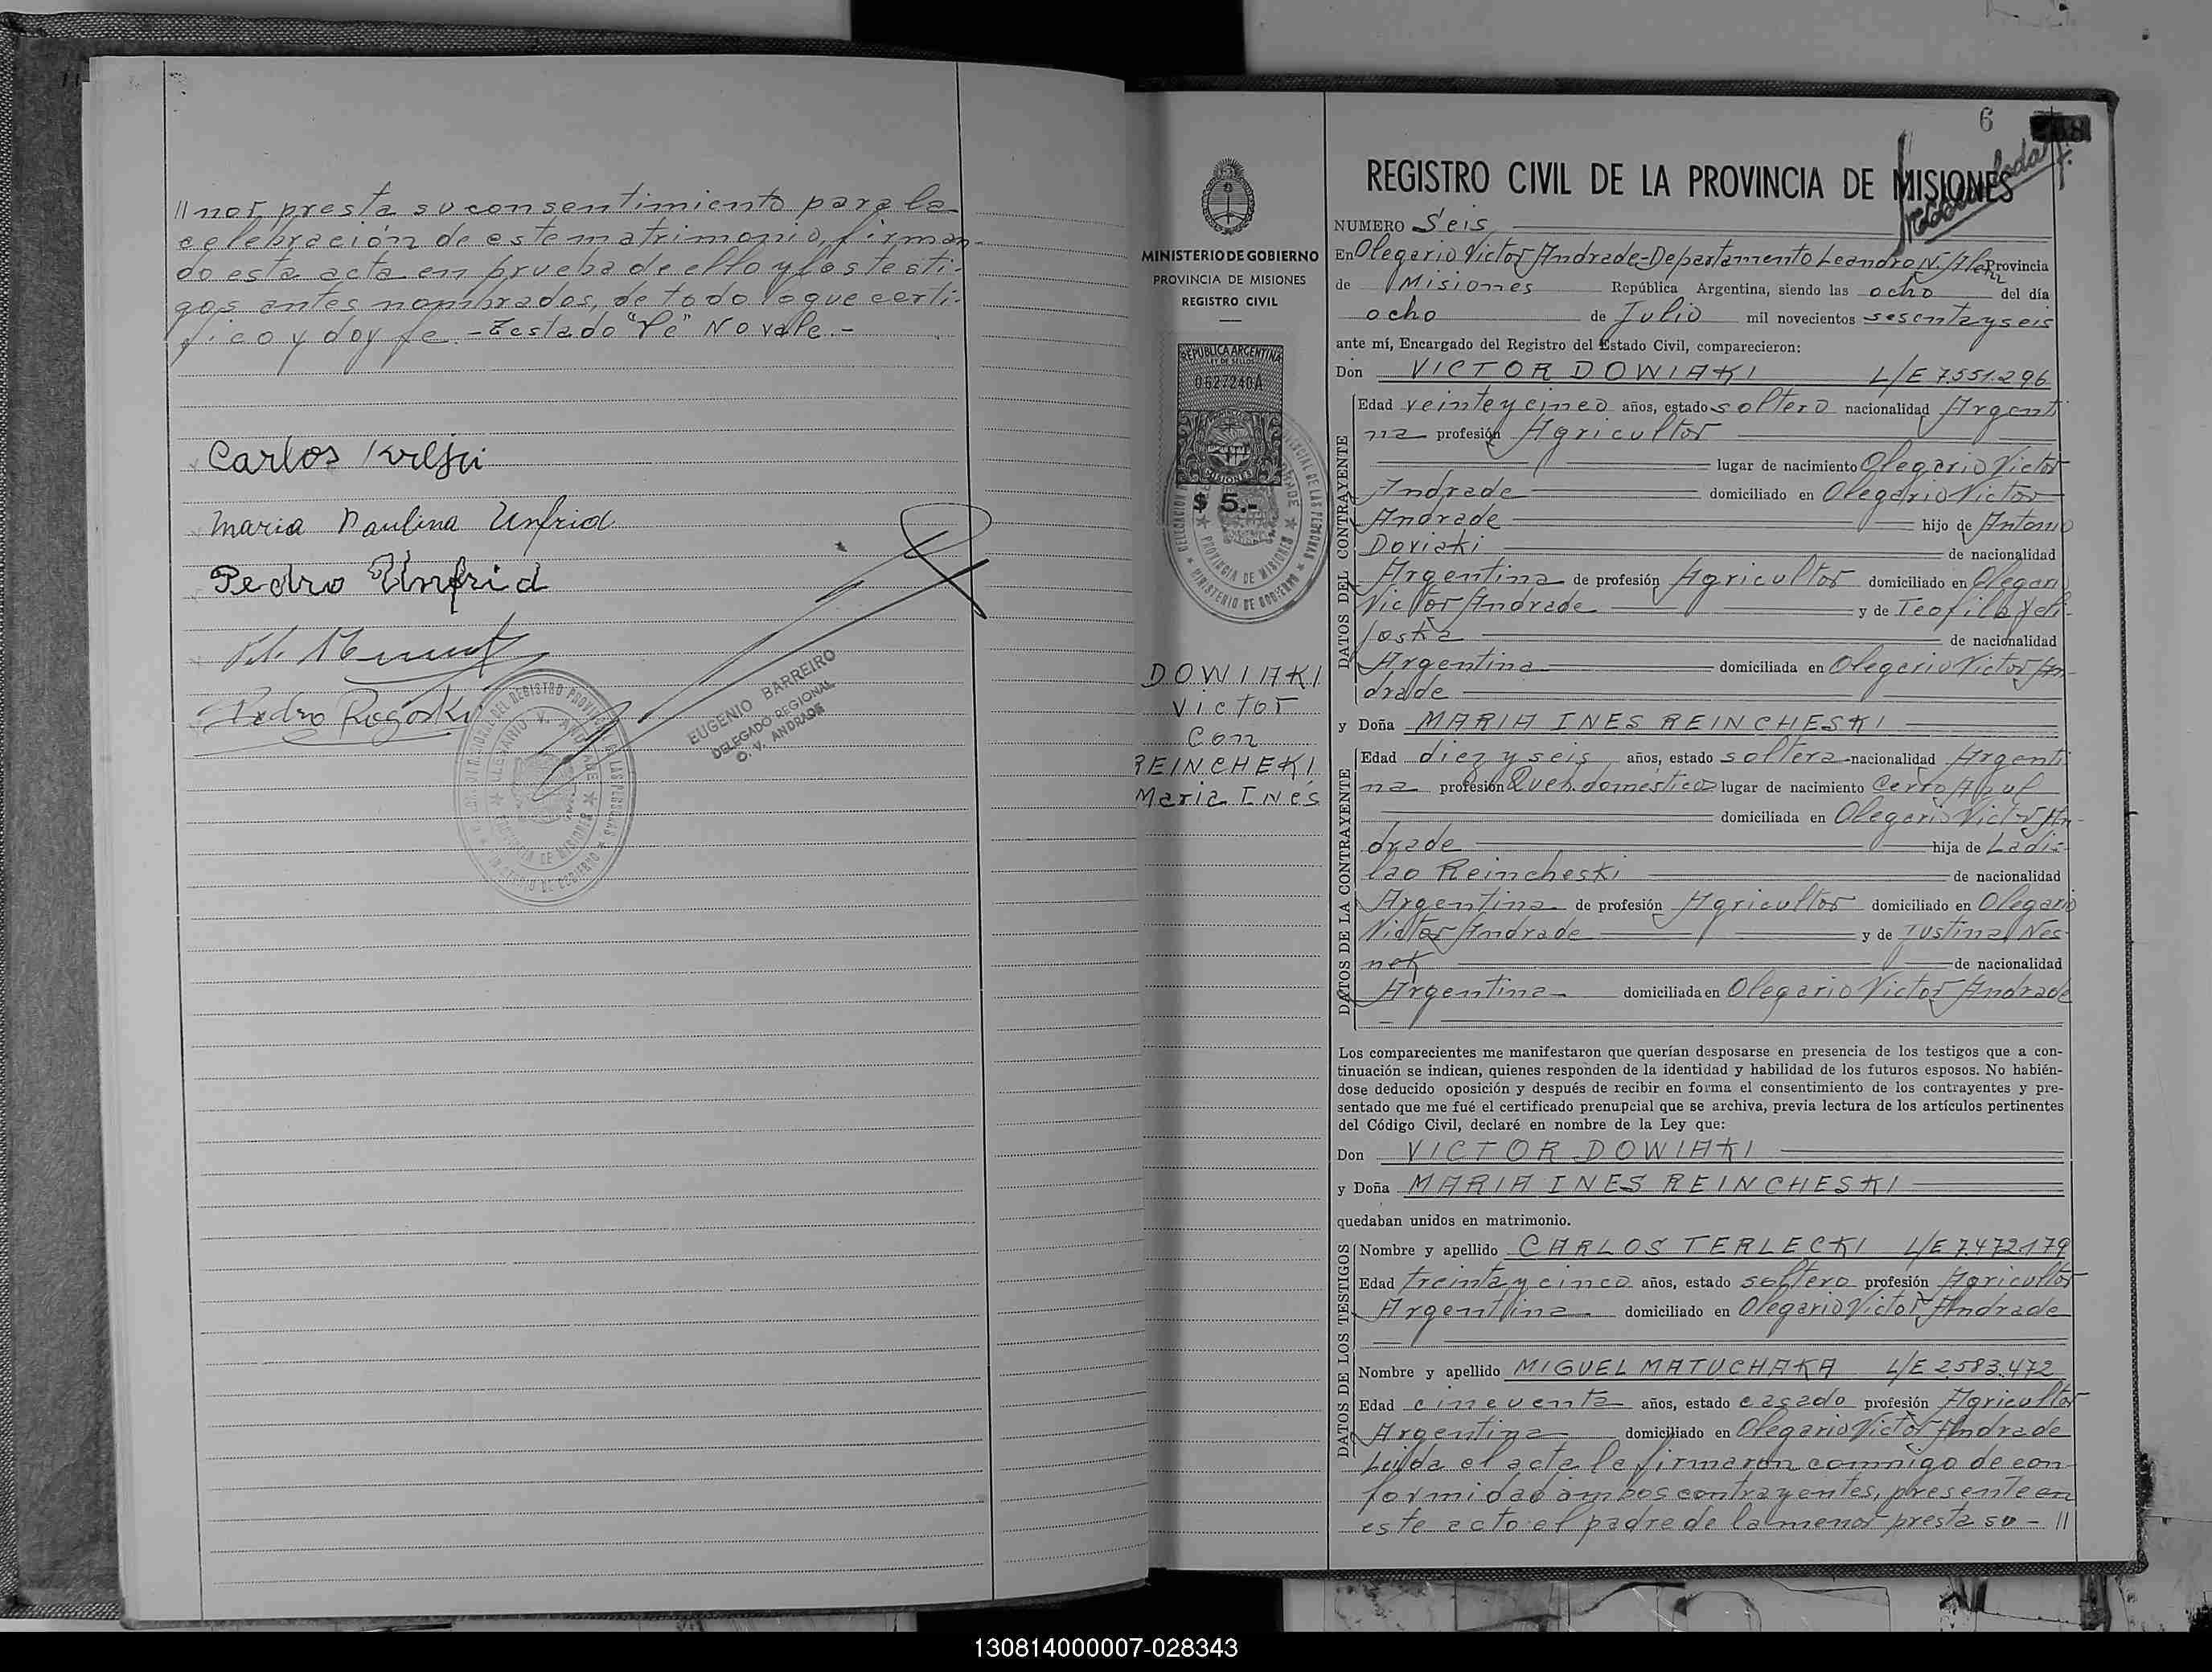 // nor, presta su consentimiento para la
celebración de este matrimonio, firman-
do esta acta en prueba de ello y los testi-
gos antes nombrados, de todo lo que certi-
fico y doy fe.- Testado "Pe" No vale.-
Carlos
Maria Paulina Unfrid
Pedro Unfrid
Pedro Rogoski
EUGENIO BARREIRO
DELEGADO REGIONAL
O. V. ANDRADE
MINISTERIO DE GOBIERNO
PROVINCIA DE MISIONES
REGISTRO CIVIL
REPUBLICA ARGENTINA
LEY DE SELLOS
0627240A
MISIONES
$ 5.-
PROVINCIA DE MISIONES
MINISTERIO DE GOBIERNO
DOWIAKI
Victor
Con
REINCHEKI
Maria Ines
6
REGISTRO CIVIL DE LA PROVINCIA DE MISIONES
NUMERO Seis
En Olegario Victor Andrade-Departamento Leandro N. Alem Provincia
de Misiones República Argentina, siendo las ocho del día
ocho de Julio mil novecientos sesenta y seis
ante mí, Encargado del Registro del Estado Civil, comparecieron:
Don VICTOR DOWIAKI L/E 7.551.296
DATOS DEL CONTRAYENTE
Edad veinte y cinco años, estado soltero nacionalidad Argenti
na profesión Agricultor
lugar de nacimiento Olegario Victor
Andrade domiciliado en Olegario Victor
Andrade hijo de Antonio
Doviaki de nacionalidad
Argentina de profesión Agricultor domiciliado en Olegario
Victor Andrade y de Teofila
de nacionalidad
Argentina domiciliada en Olegario Victor An-
drade
y Doña MARIA INES REINCHESKI
DATOS DE LA CONTRAYENTE
Edad diez y seis años, estado soltera nacionalidad Argenti
na profesión Queh. domesticos lugar de nacimiento Cerro Azul
domiciliada en Olegario Victor An-
drade hija de Ladis-
lao Reincheski de nacionalidad
Argentina de profesión Agricultor domiciliado en Olegario
Victor Andrade y de Justina Nes-
nek de nacionalidad
Argentina domiciliada en Olegario Victor Andrade
Los comparecientes me manifestaron que querían desposarse en presencia de los testigos que a con-
tinuación se indican, quienes responden de la identidad y habilidad de los futuros esposos. No habién-
dose deducido oposición y después de recibir en forma el consentimiento de los contrayentes y pre-
sentado que me fué el certificado prenupcial que se archiva, previa lectura de los artículos pertinentes
del Código Civil, declaré en nombre de la Ley que:
Don VICTOR DOWIAKI
y Doña MARIA INES REINCHESKI
quedaban unidos en matrimonio.
DATOS DE LOS TESTIGOS
Nombre y apellido CARLOS TERLECKI L/E 7.472.179
Edad treinta y cinco años, estado soltero profesión Agricultor
Argentina domiciliado en Olegario Victor Andrade
Nombre y apellido MIGUEL MATUCHAKA L/E 2.583.472
Edad cincuenta años, estado casado profesión Agricultor
Argentina domiciliado en Olegario Victor Andrade
Leida el acta la firmaron conmigo de con-
formidad ambos contrayentes, presente en
este acto el padre de la menor presta su - //
130814000007-028343